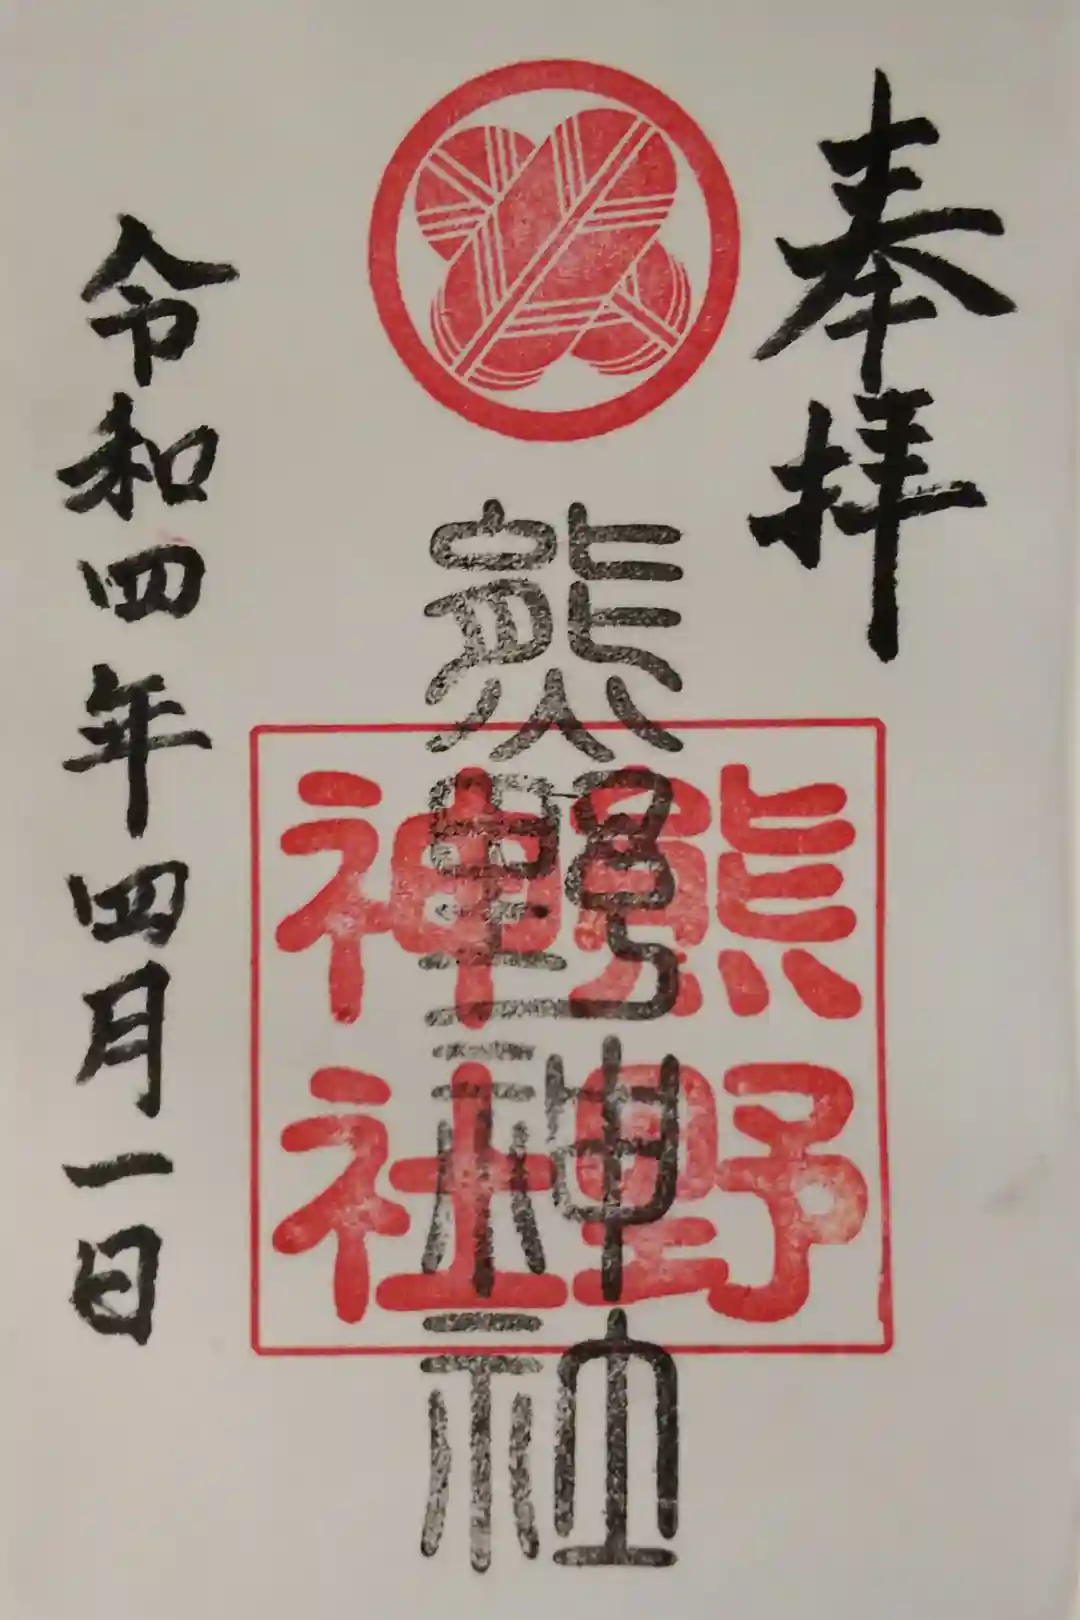 奉拝
熊野神社
熊野
神社
令和四年四月一日